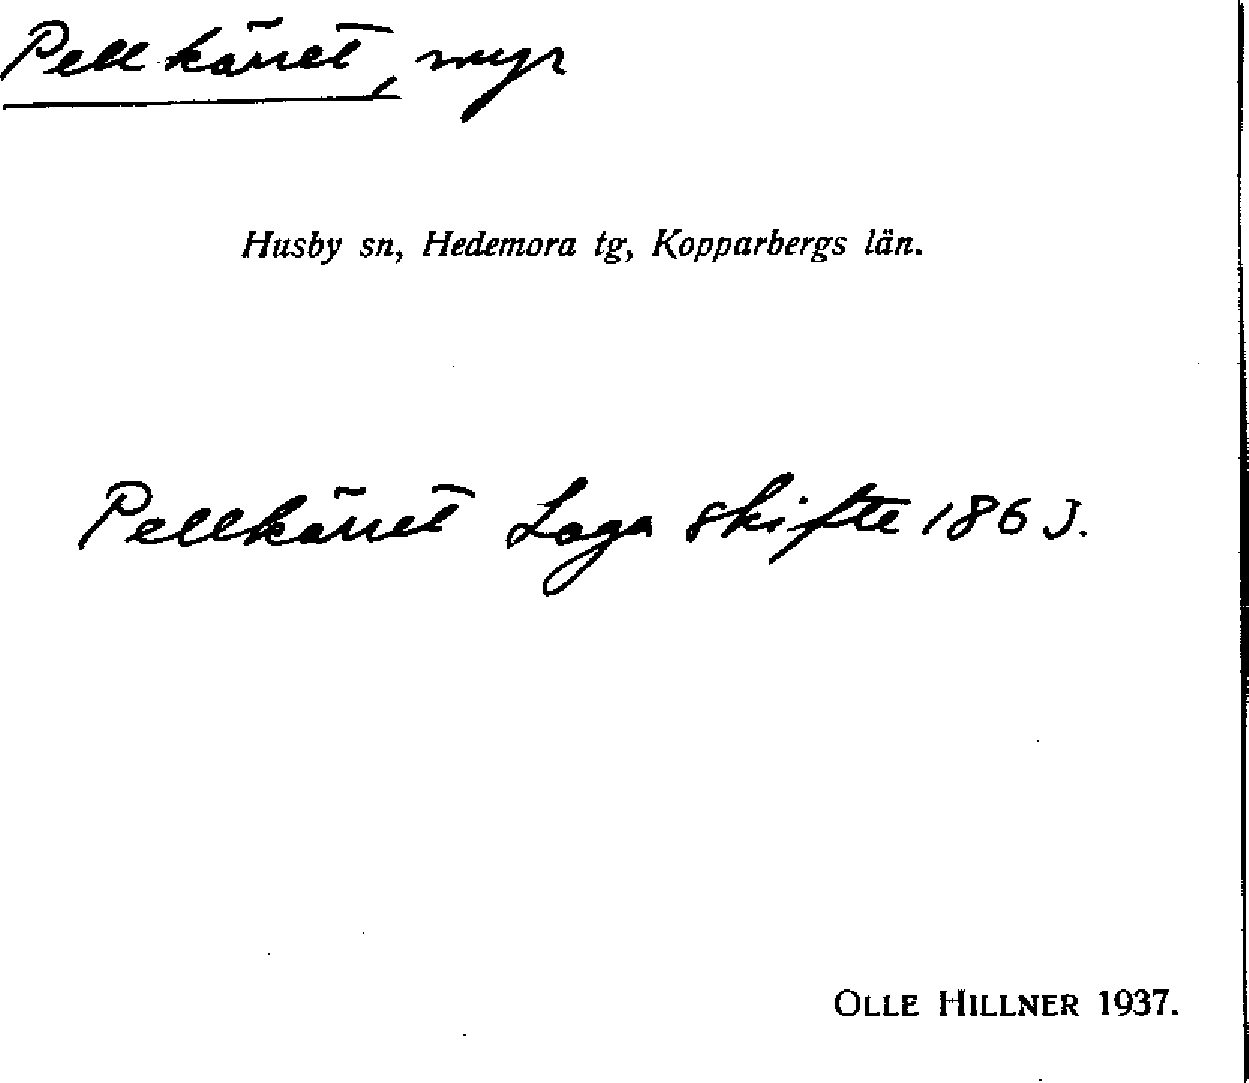 Pellkärret, myr
Husby sn, Hedemora tg, Kopparbergs län.
Pellkärret Laga skifte 1863.
OLLE HILLNER 1937.